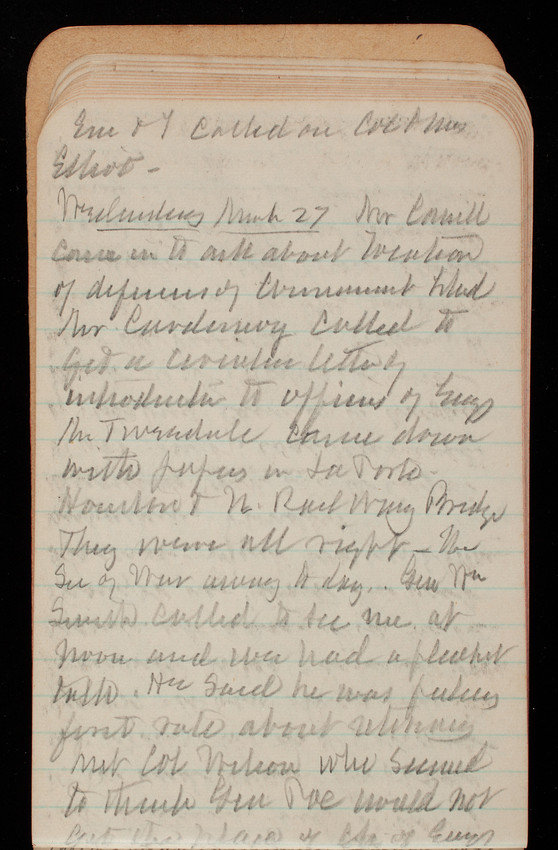 Em & I called on Col & Mrs
Elliot -
Wednesday March 27 Mr
came in to ask about location
of defenses of Government Island
Mr called to
get a circular letter of
introduction to officers of Engs
Mr Tweedale came down
with papers in La Porte
Houston & N. Rail Way Bridge
They were all right - The
Sec of War away to day. Gen Wm
Smith called to see me at
noon and we had a pleasant
talk. He said he was feeling
first rate about retiring
Met Col Wilson who seemed
to think Gen Poe would not
get the place of Ch. of Engs